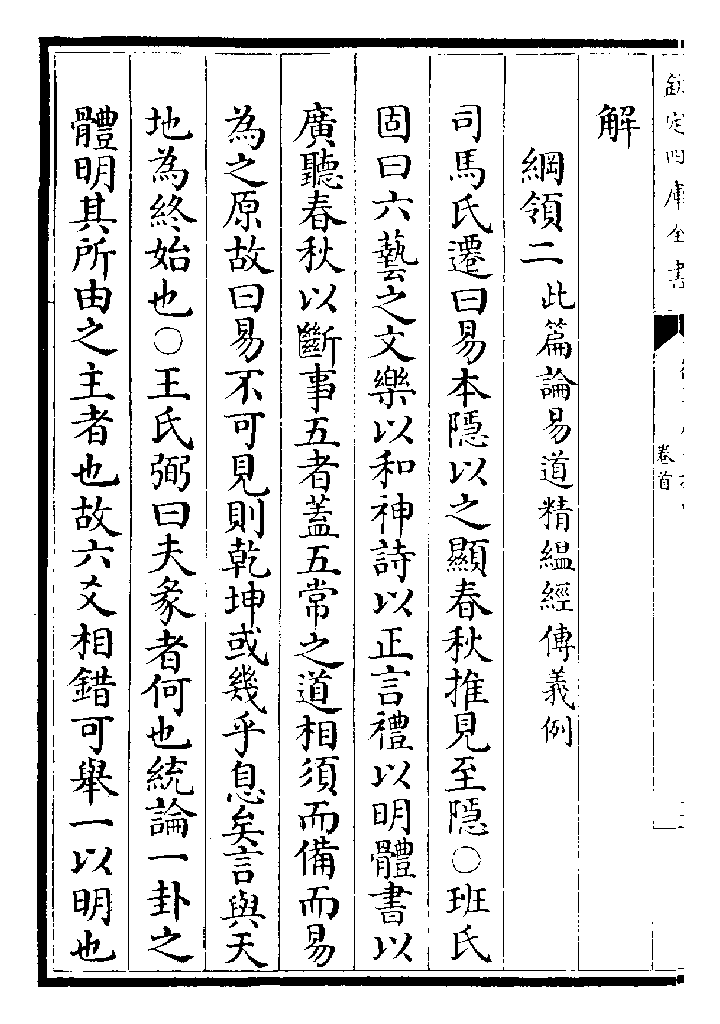 欽定四庫全書
卷首
解
綱領二此篇論易道精緼經傳義例
司馬氏遷曰易本隱以之顯春秋推見至隱○班氏
固曰六藝之文樂以和神詩以正言禮以明體書以
廣聽春秋以斷事五者蓋五常之道相須而備而易
為之原故曰易不可見則乾坤或幾乎息矣言與天
地為終始也○王氏弼曰夫彖者何也統論一卦之
體明其所由之主者也故六爻相錯可舉一以明也